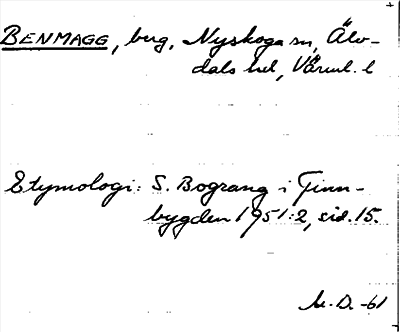 BENMAGG, berg, Nyskoga sn, Älv-
dals hd, Värml. l
Etymologi: S. Bograng i Finn-
bygden 1951:2, sid. 15.
M. D. -61